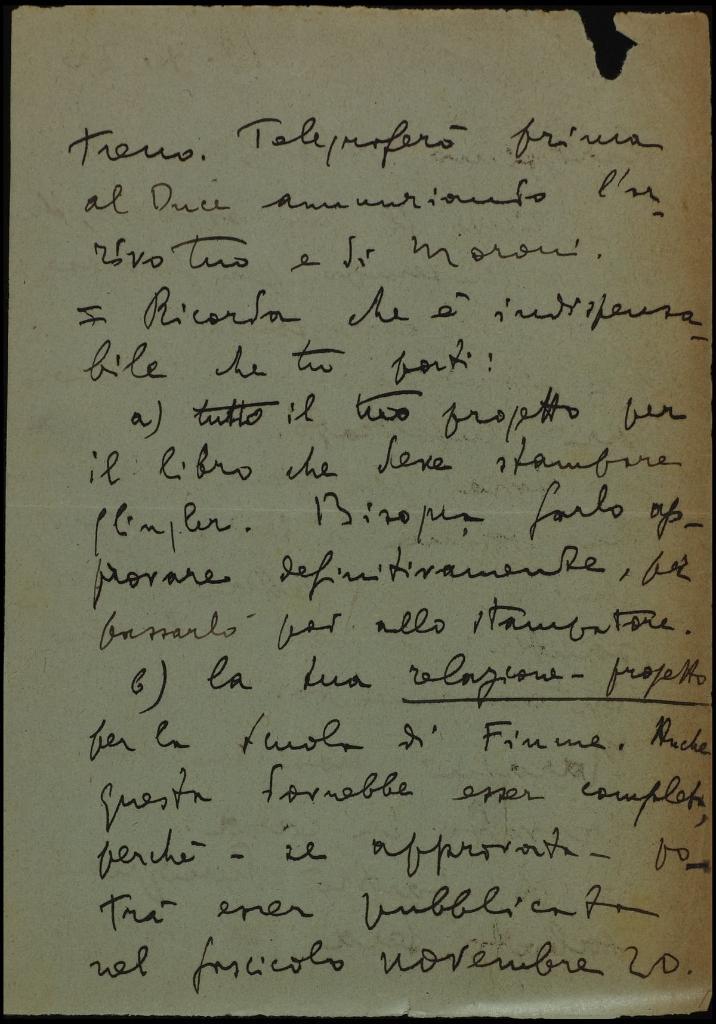 treno. Telegraferò prima
al Duce annunziando l'ar-
rivo tuo e di Maroni.
= Ricorda che è indispensa-
bile che tu porti:
a) tutto il tuo progetto per
il libro che deve stampare
. Bisogna farlo ap-
provare definitivamente, per
passarlo poi allo stampatore.
b) la tua relazione-progetto
per la scuola di Fiume. Anche
questa dovrebbe esser completa,
perché - se approvata - po-
trà esser pubblicata
nel fascicolo novembre 20.